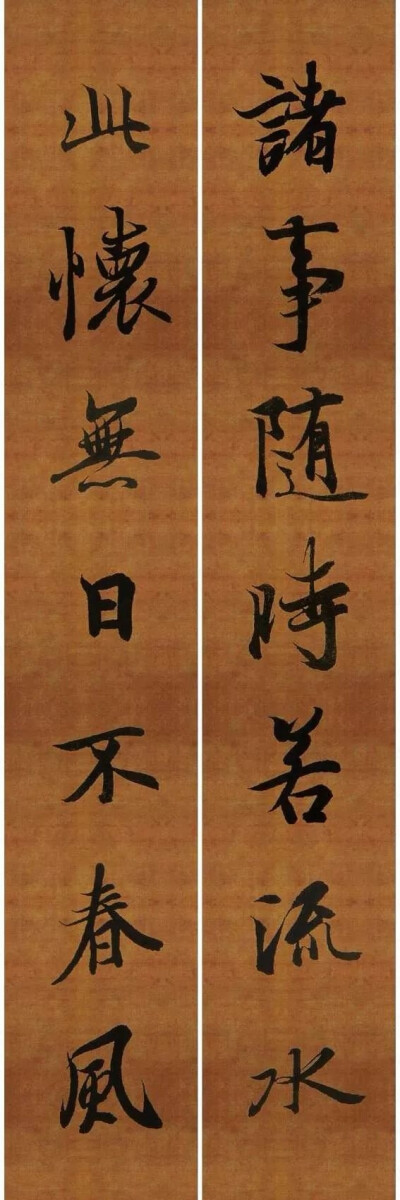 諸事隨時若流水
此懷無日不春風